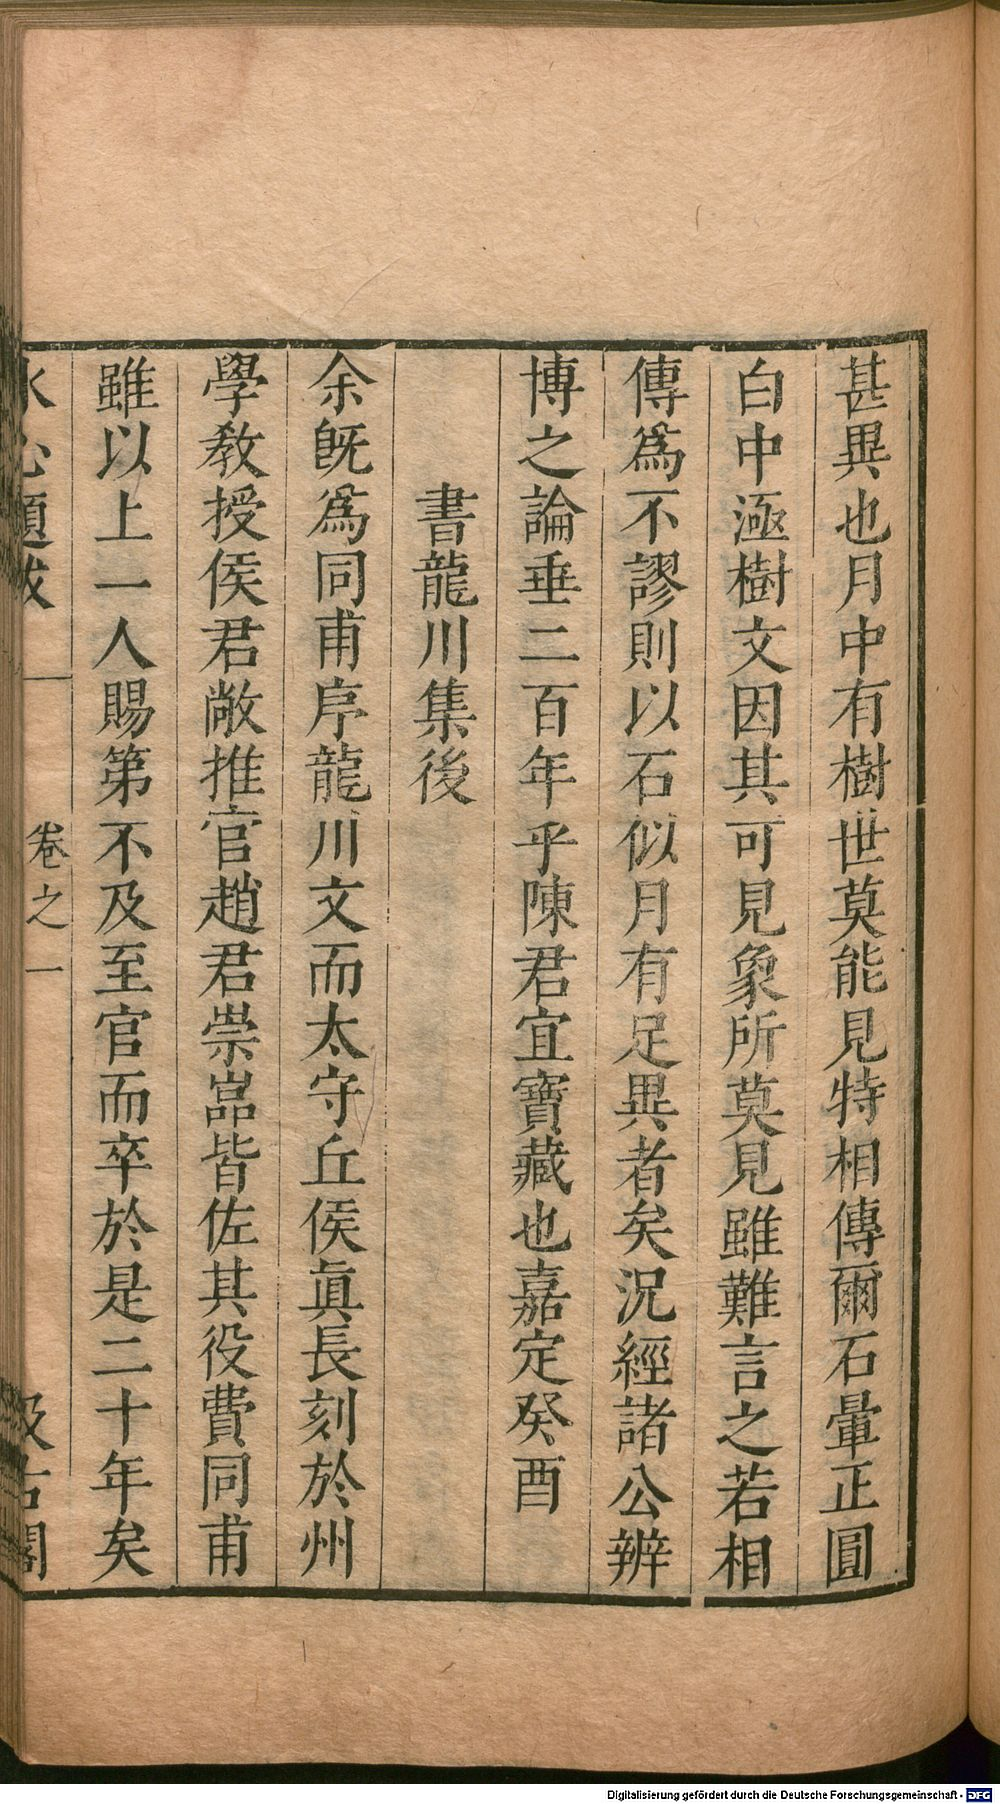 甚異也月中有樹世莫能見特相傳爾石暈正圓
白中極樹文因其可見象所莫見雖難言之若相
傳爲不謬則以石似月有足異者矣況經諸公辨
博之論垂二百年乎陳君宜寶藏也嘉定癸酉
書龍川集後
余旣爲同甫序龍川文而太守丘侯眞長刻於州
學教授侯君敞推官趙君崇嵓皆佐其役費同甫
雖以上一人賜第不及至官而卒於是二十年矣
水心題跋 卷之一 汲古閣
Digitalisierung gefördert durch die Deutsche Forschungsgemeinschaft - DFG